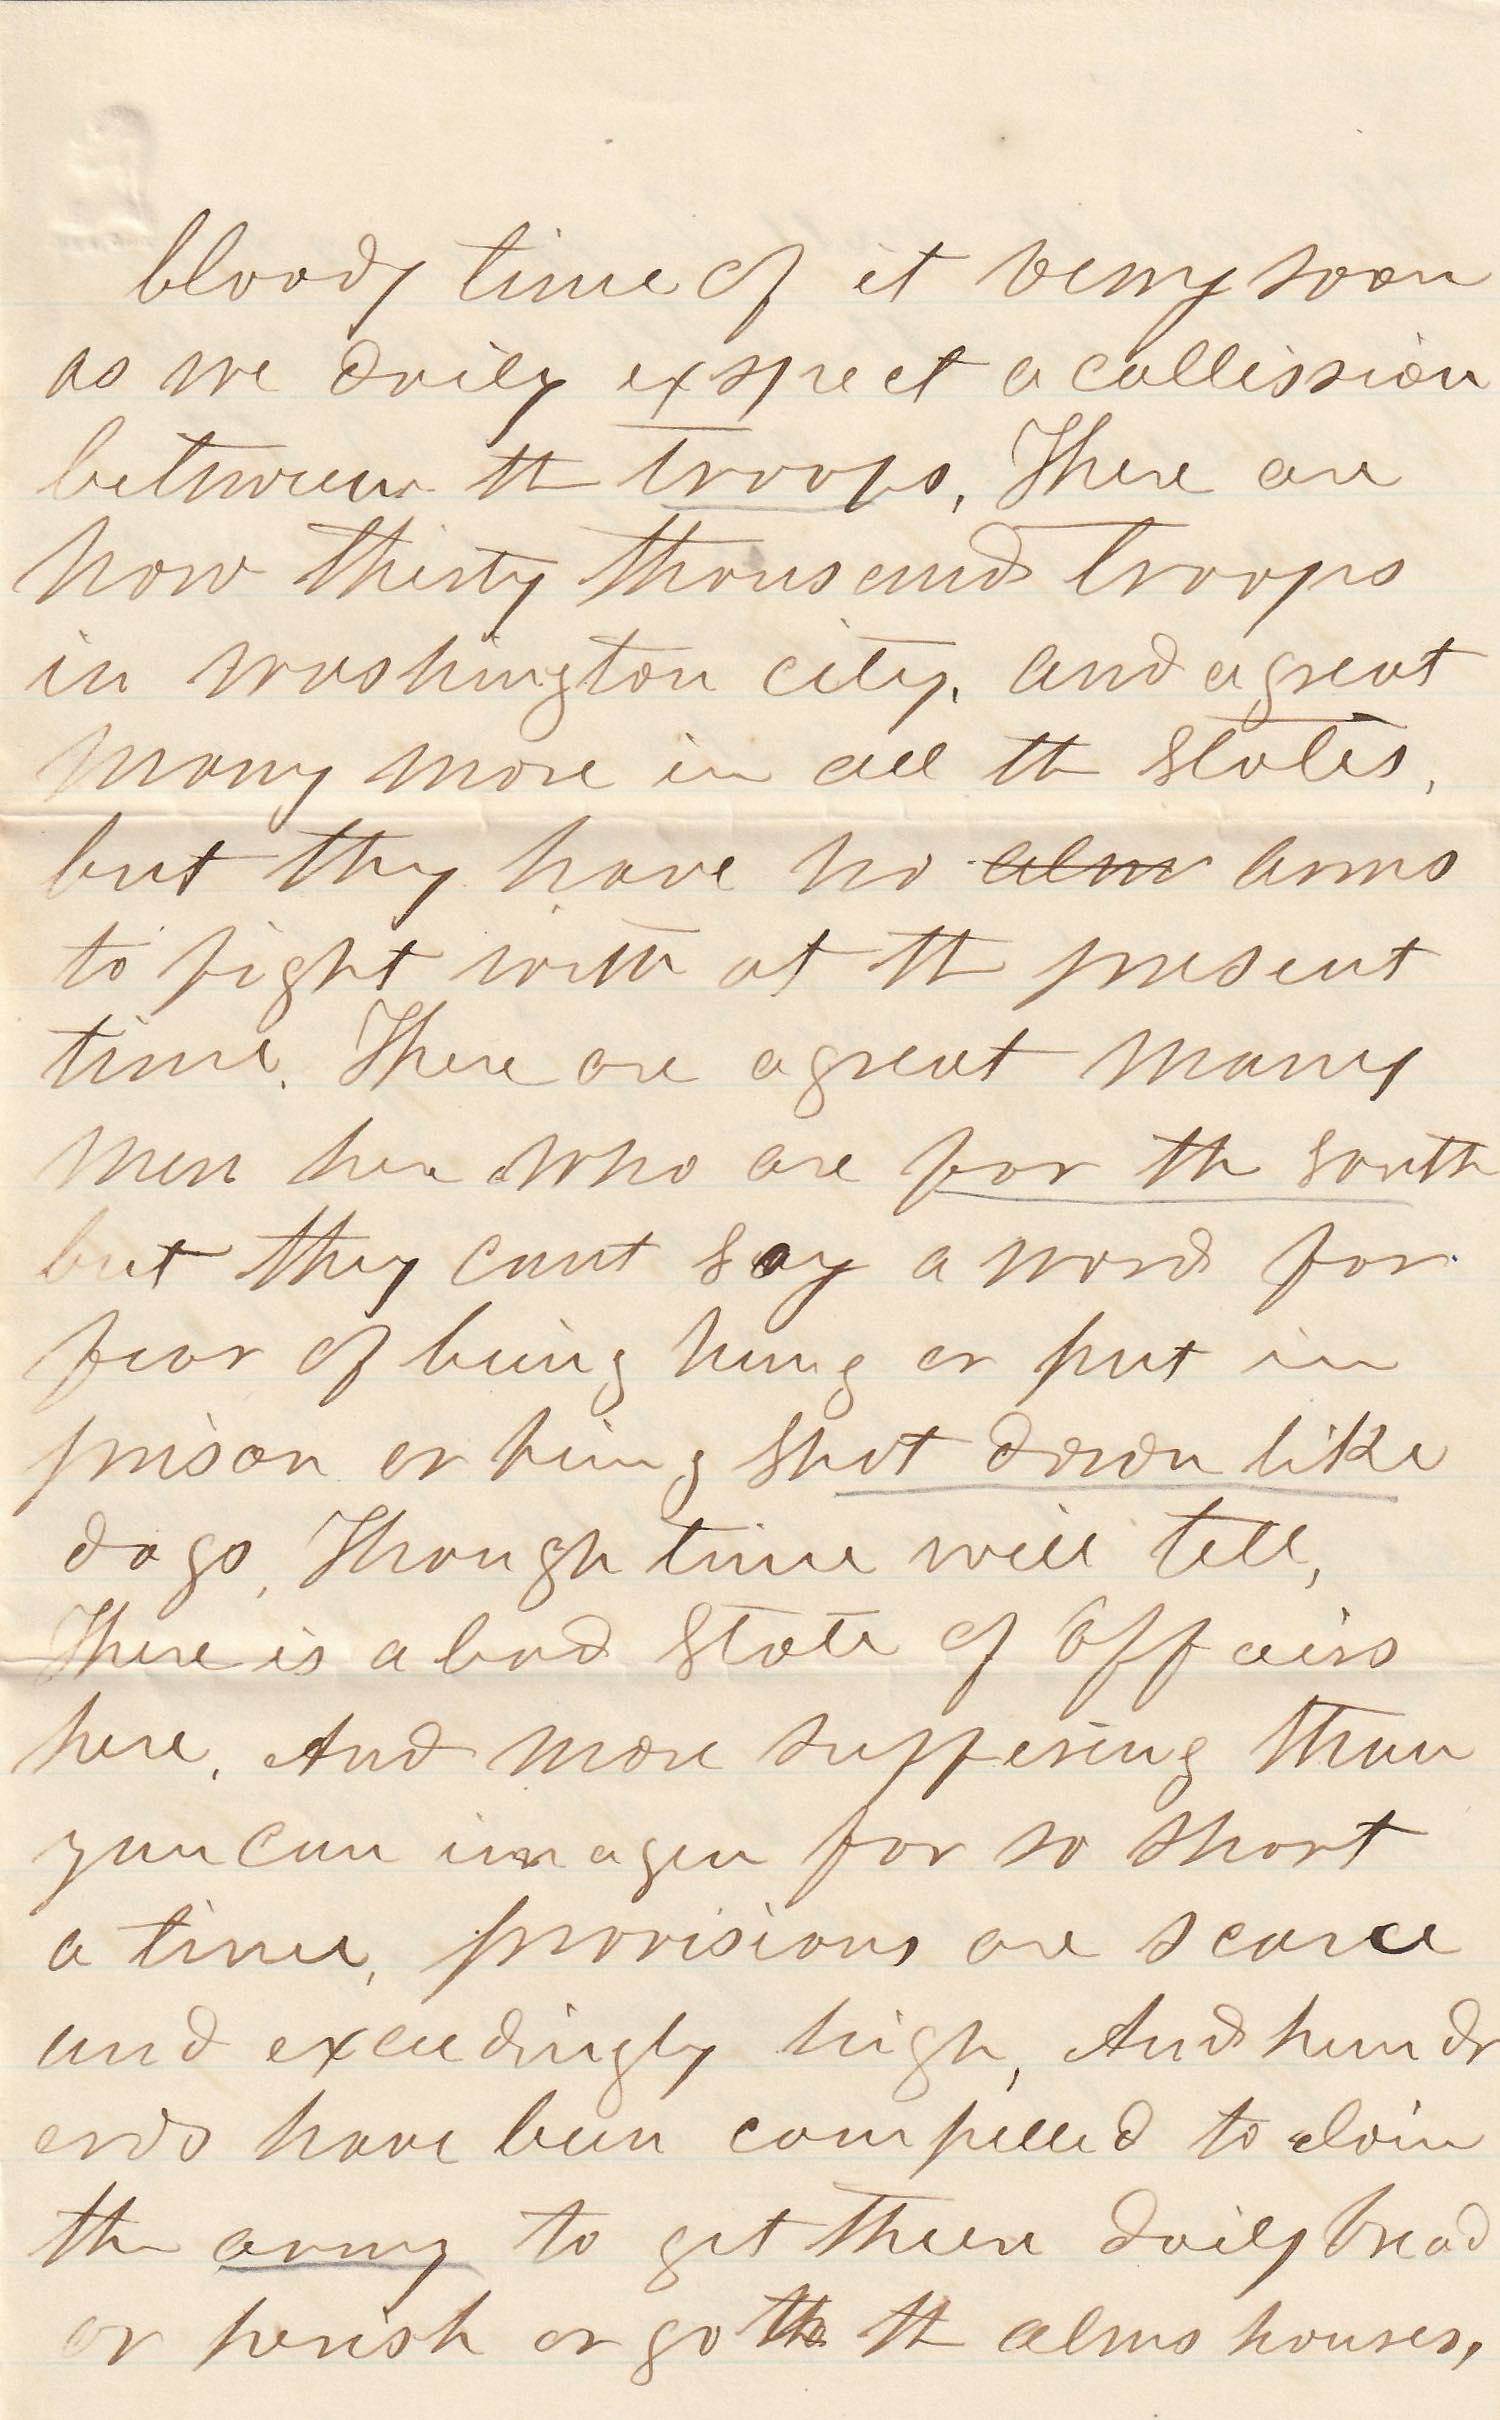 bloody time of it verry soon
as we daily expect a collission
between th troops, There are
now thirty thousand troops
in washington city, and a great
many more in all th States,
but they have no alm arms
to fight with at th present
time. There are a great many
men here who are for th South
but they cant say a word for
fear of being hung or put in
prison or being shot down like
dogs, Though time will tell,
There is a bad State of Affairs
here, And more suffering than
you can imagen for so short
a time, provisions are scarce
and exceedingly high, And hundr
erds have been compelled to Join
the army to get there daily bread
or perish or go th th alms houses,